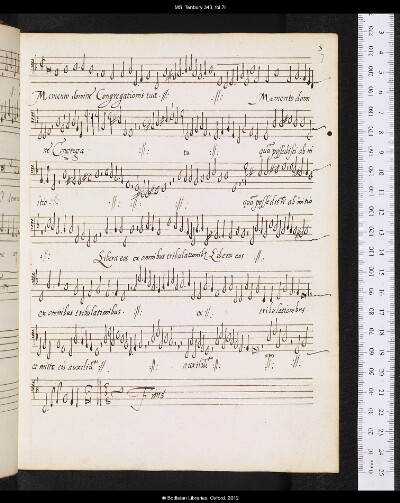 MS. Tenbury 343, fol.7r
Memento domine Congregationis tuae :||: :||: Memento domi
ne Congrega :||: tu :||: quā possedisti ab ni
itio :||: :||: quā possedisti ab initio
:||: Libera eos ex omnibus tribulationibꝰ Libera eos :||:
ex omnibus tribulationibus :||: ex :||: tribulationibus
et mitte eis auxiliū :||: auxiliū :||: :||: :||:
Finis
© Bodleian Libraries, Oxford, 2012